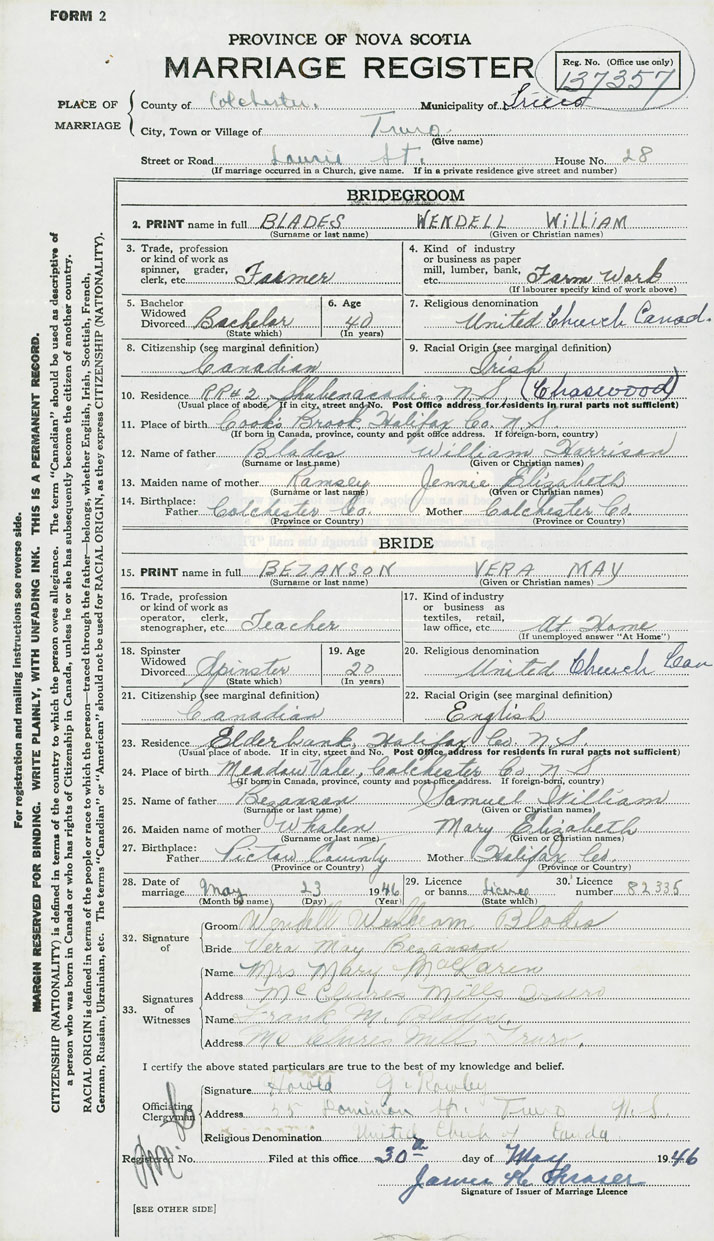 FORM 2
PROVINCE OF NOVA SCOTIA
MARRIAGE REGISTER
Reg. No. (Office use only)
137357
PLACE OF MARRIAGE
County of Colchester. Municipality of Truro
City, Town or Village of Truro
(Give name)
Street or Road Laurie St. House No. 28
(If marriage occurred in a Church, give name. If in a private residence give street and number)
BRIDEGROOM
2. PRINT name in full BLADES WENDELL WILLIAM
(Surname or last name) (Given or Christian names)
3. Trade, profession or kind of work as spinner, grader, clerk, etc. Farmer
4. Kind of industry or business as paper mill, lumber, bank, etc. Farm Work
(If labourer specify kind of work above)
5. Bachelor Widowed Divorced Bachelor
(State which)
6. Age 40
(In years)
7. Religious denomination
United Church Canad.
8. Citizenship (see marginal definition)
Canadian
9. Racial Origin (see marginal definition)
Irish
10. Residence RR#2 Shubenacadie, N.S. (Chaswood)
(Usual place of abode. If in city, street and No. Post Office address for residents in rural parts not sufficient)
11. Place of birth Cooks Brook Halifax Co. N.S.
(If born in Canada, province, county and post office address. If foreign-born, country)
12. Name of father Blades William Harrison
(Surname or last name) (Given or Christian names)
13. Maiden name of mother Ramsey Jennie Elizabeth
(Surname or last name) (Given or Christian names)
14. Birthplace: Father Colchester Co. Mother Colchester Co.
(Province or Country) (Province or Country)
BRIDE
15. PRINT name in full BEZANSON VERA MAY
(Surname or last name) (Given or Christian names)
16. Trade, profession or kind of work as operator, clerk, stenographer, etc. Teacher
17. Kind of industry or business as textiles, retail, law office, etc. At Home
(If unemployed answer "At Home")
18. Spinster Widowed Divorced Spinster
(State which)
19. Age 20
(In years)
20. Religious denomination
United Church Can
21. Citizenship (see marginal definition)
Canadian
22. Racial Origin (see marginal definition)
English
23. Residence Elderbank, Halifax Co. N.S.
(Usual place of abode. If in city, street and No. Post Office address for residents in rural parts not sufficient)
24. Place of birth Meadow Vale, Colchester Co. N.S
(If born in Canada, province, county and post-office address. If foreign-born, country)
25. Name of father Bezanson Samuel William
(Surname or last name) (Given or Christian names)
26. Maiden name of mother Whalen Mary Elizabeth
(Surname or last name) (Given or Christian names)
27. Birthplace: Father Pictou County Mother Halifax Co.
(Province or Country) (Province or Country)
28. Date of marriage May 23 1946
(Month by name) (Day) (Year)
29. Licence or banns Licence
(State which)
30. Licence number 82335
32. Signature of
Groom Wendell William Blades
Bride Vera May Bezanson
33. Signatures of Witnesses
Name Mrs Mary MacLaren
Address McClures Mills Truro
Name Frank M. Blades.
Address Mc Clures Mills Truro.
I certify the above stated particulars are true to the best of my knowledge and belief.
Officiating Clergyman
Signature Harold G. Rowley
Address 55 Dominion St. Truro N.S.
Religious Denomination United Church of Canada
Registered No. Filed at this office 30th day of May 1946
James K Fraser
Signature of Issuer of Marriage Licence
[SEE OTHER SIDE]
For registration and mailing instructions see reverse side.
MARGIN RESERVED FOR BINDING. WRITE PLAINLY, WITH UNFADING INK. THIS IS A PERMANENT RECORD.
CITIZENSHIP (NATIONALITY) is defined in terms of the country to which the person owes allegiance. The term "Canadian" should be used as descriptive of
a person who was born in Canada or who has rights of Citizenship in Canada, unless he or she has subsequently become the citizen of another country.
RACIAL ORIGIN is defined in terms of the people or race to which the person—traced through the father—belongs, whether English, Irish, Scottish, French,
German, Russian, Ukrainian, etc. The terms "Canadian" or "American" should not be used for RACIAL ORIGIN, as they express CITIZENSHIP (NATIONALITY).